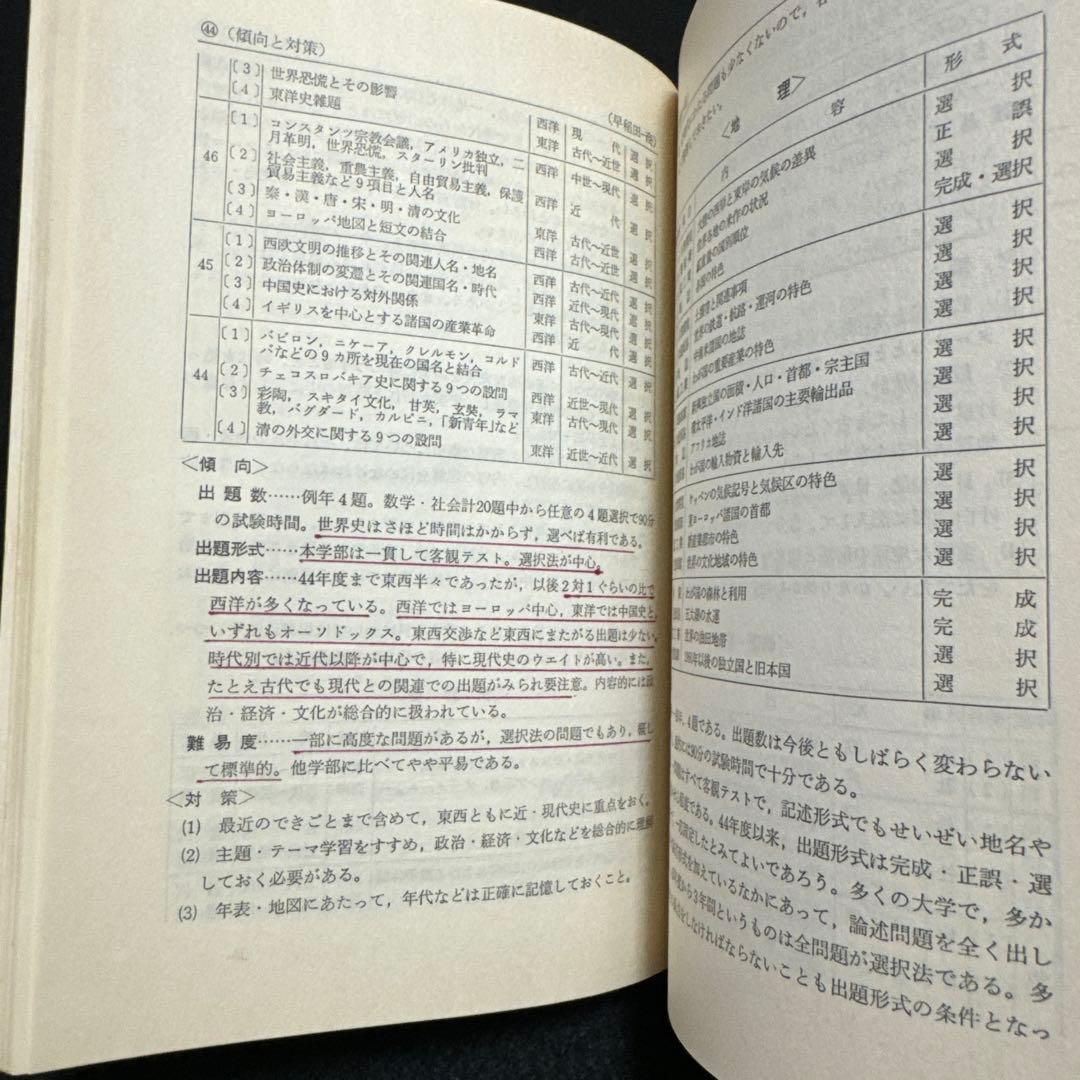 ㊹（傾向と対策）
（早稲田―商）
〔3〕 世界恐慌とその影響
〔4〕 東洋史雑題
西洋 現代 選択
東洋 古代～近世 選択
46 〔1〕 コンスタンツ宗教会議，アメリカ独立，二
月革明，世界恐慌，スターリン批判 西洋 中世～現代 選択
〔2〕 社会主義，重農主義，自由貿易主義，保護
貿易主義など9項目と人名 西洋 近代 選択
〔3〕 秦・漢・唐・宋・明・清の文化 東洋 古代～近世 選択
〔4〕 ヨーロッパ地図と短文の結合 西洋 古代～近世 選択
45 〔1〕 西欧文明の推移とその関連人名・地名 西洋 古代～近代 選択
〔2〕 政治体制の変遷とその関連国名・時代 西洋 近代～現代 選択
〔3〕 中国史における対外関係 東洋 古代～現代 選択
〔4〕 イギリスを中心とする諸国の産業革命 西洋 近代 選択
44 〔1〕 バビロン，ニケーア，クレルモン，コルド
バなどの9ヵ所を現在の国名と結合 西洋 古代～近代 選択
〔2〕 チェコスロバキア史に関する9つの設問 西洋 近世～現代 選択
〔3〕 彩陶，スキタイ文化，甘英，玄奘，ラマ
教，バグダード，カルピニ，「新青年」など 東洋 古代～現代 選択
〔4〕 清の外交に関する9つの設問 東洋 近世～近代 選択
＜傾 向＞
出 題 数……例年4題。数学・社会計20題中から任意の4題選択で90分
の試験時間。世界史はさほど時間はかからず，選べば有利である。
出題形式……本学部は一貫して客観テスト。選択法が中心。
出題内容……44年度まで東西半々であったが，以後2対1ぐらいの比で
西洋が多くなっている。西洋ではヨーロッパ中心，東洋では中国史と，
いずれもオーソドックス。東西交渉など東西にまたがる出題は少ない。
時代別では近代以降が中心で，特に現代史のウエイトが高い。また，
たとえ古代でも現代との関連での出題がみられ要注意。内容的には政
治・経済・文化が総合的に扱われている。
難 易 度……一部に高度な問題があるが，選択法の問題でもあり，概し
て標準的。他学部に比べてやや平易である。
＜対 策＞
(1) 最近のできごとまで含めて，東西ともに近・現代史に重点をおく。
(2) 主題・テーマ学習をすすめ，政治・経済・文化などを総合的に理解
しておく必要がある。
(3) 年表・地図にあたって，年代などは正確に記憶しておくこと。
問題も少なくないので，
＜地 理＞
内 容 形 式
西岸と東岸の気候の差異 選択
各地の米作の状況 正誤
国別順位 選択
の特色 完成・選択
と関連事項 選択
世界の鉄道・航路・運河の特色 選択
諸国の地誌 選択
わが国の重要産業の特色 選択
新興独立国の面積・人口・首都・宗主国 選択
南太平洋・インド洋諸国の主要輸出品 選択
アフリカ地誌 選択
わが国の輸入物資と輸入先 選択
ケッペンの気候記号と気候区の特色 選択
ヨーロッパ諸国の首都 選択
都市の特色 選択
世界の文化地域の特色 選択
わが国の森林と利用 完成
五大湖の水運 完成
世界の油田地帯 選択
年以後の独立国と旧本国 選択
4題である。出題数は今後ともしばらく変わらない
には90分の試験時間で十分である。
はすべて客観テストで，記述形式でもせいぜい地名や
程度である。44年度以来，出題形式は完成・正誤・選
固定したとみてよいであろう。多くの大学で，多か
形式を加えているなかにあって，論述問題を全く出し
から3年間というものは全問題が選択法である。多
をしなければならないことも出題形式の条件となっ